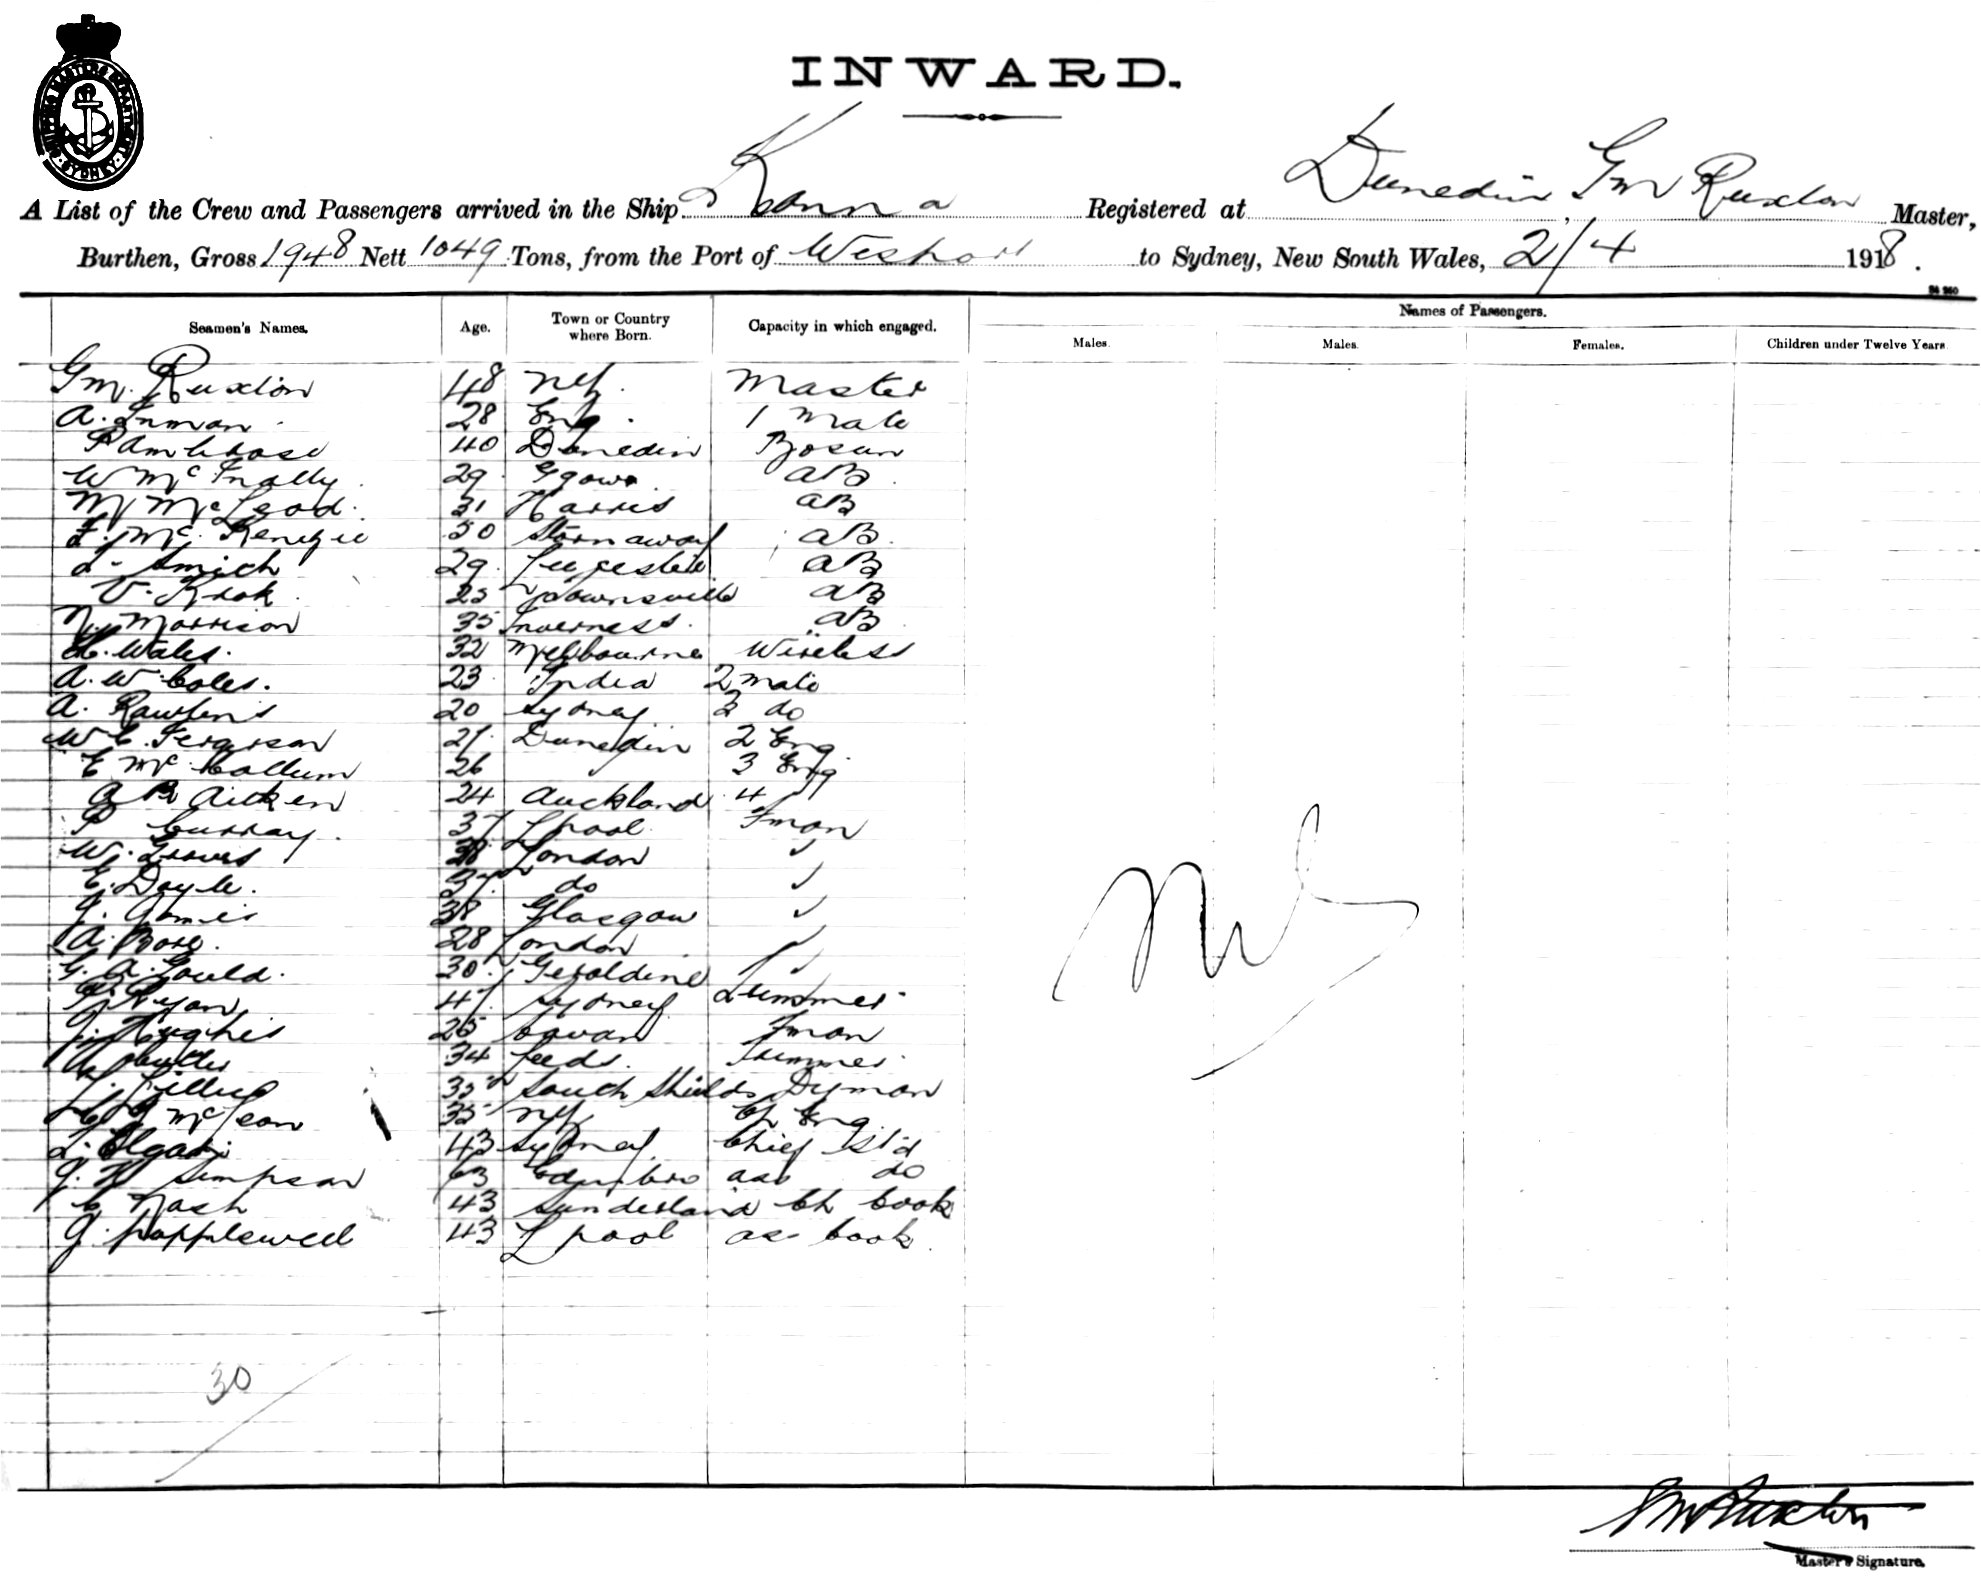 SHIPPING MASTERS DEPARTMENT SYDNEY
INWARD.
A List of the Crew and Passengers arrived in the Ship Kanna Registered at Dunedin, GM Ruxton Master,
Burthen, Gross 1948 Nett 1049 Tons, from the Port of Westport to Sydney, New South Wales, 2/4 1918.
Names of Passengers.
Seamen's Names. Age. Town or Country where Born. Capacity in which engaged. Males. Males. Females. Children under Twelve Years
GM. Ruxton 48 NZ. Master
A. Inman 28 Eng. 1 Mate
P Ambrose 40 Dunedin Bosun
W McInally 29 Ggow AB
M McLeod. 31 Harris AB
McKenzie 30 Stornaway AB.
L. Smich 29. Leicester AB
V. Krok 23 Townsville AB
N. Morrison 35 Inverness. AB
Wales. 32 Melbourne Wireless
A. W. Coles. 23 India 2 Mate
A. Rawlins 20 Sydney 3 do
W C. Ferguson 27. Dunedin 2 Eng
E McCallum 26 3 Eng
A R Aitken 24 Auckland 4
P Curray. 37 Lpool Fman
W. Groves London ✓
E. Doyle. 37. do ✓
J. 38 Glasgow ✓
A. 28 London ✓
G. A. Gould. 30. Geraldine ✓
Ryan 47. Sydney Trimmer
J. Hughes 25 Cavan Fman
34 Leeds. Trimmer
35 South Shields Dyman
McLean 35 NZ Ch Eng
43 Sydney Chief Std
J. H Simpson 63 Edinboro ass do
C Nash 43 Sunderland Ch Cook
J. Popplewell 43 Lpool ass Cook
Nil
30
GM Ruxton
Master's Signature.